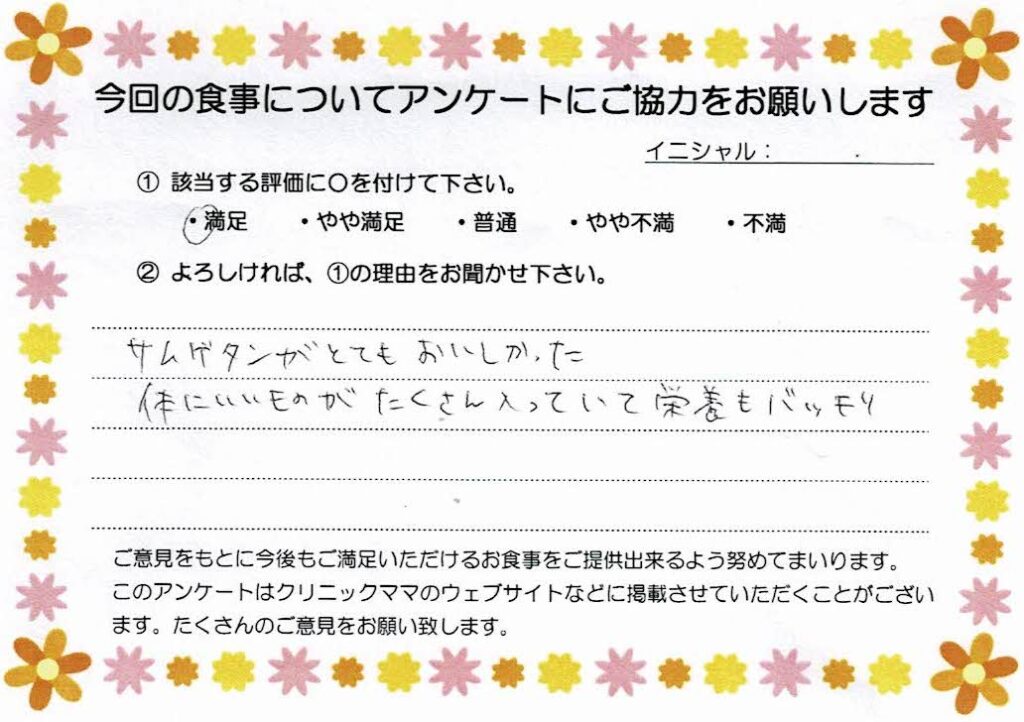 今回の食事についてアンケートにご協力をお願いします
イニシャル：
① 該当する評価に〇を付けて下さい。
・満足 ・やや満足 ・普通 ・やや不満 ・不満
② よろしければ、①の理由をお聞かせ下さい。
サムゲタンがとてもおいしかった
体にいいものがたくさん入っていて栄養もバッチリ
ご意見をもとに今後もご満足いただけるお食事をご提供出来るよう努めてまいります。
このアンケートはクリニックママのウェブサイトなどに掲載させていただくことがござい
ます。たくさんのご意見をお願い致します。